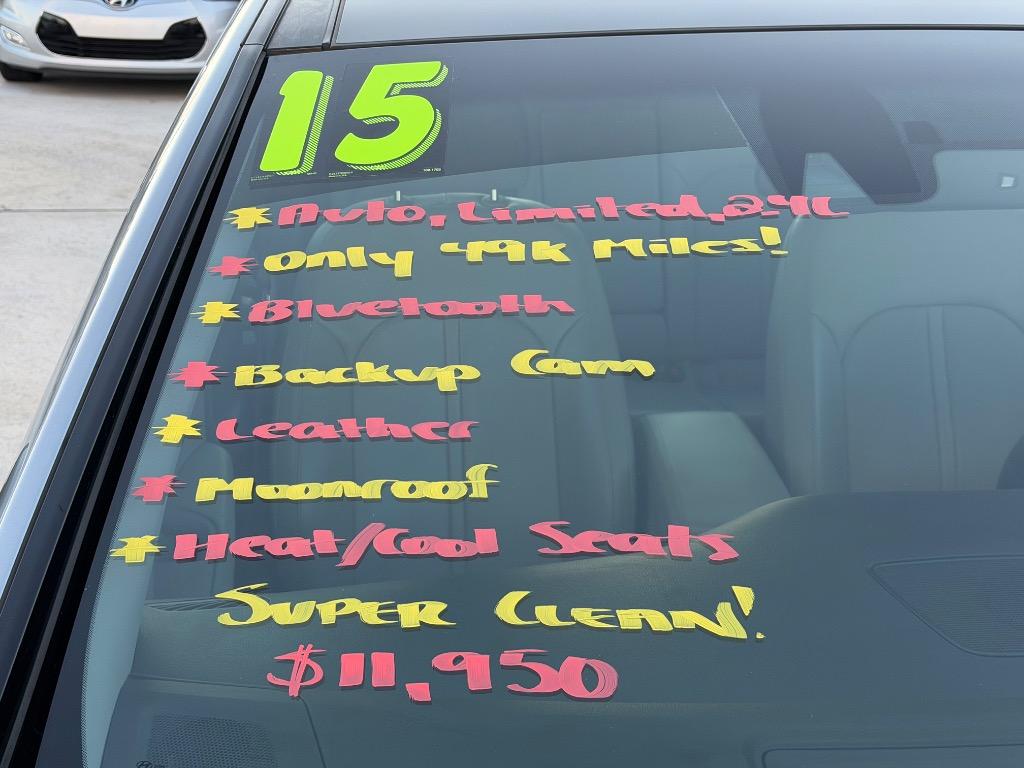 15
* Auto, Limited, 2.4L
* Only 49k Miles!
* Bluetooth
* Backup Cam
* Leather
* Moonroof
* Heat/Cool Seats
Super Clean!
$11,950